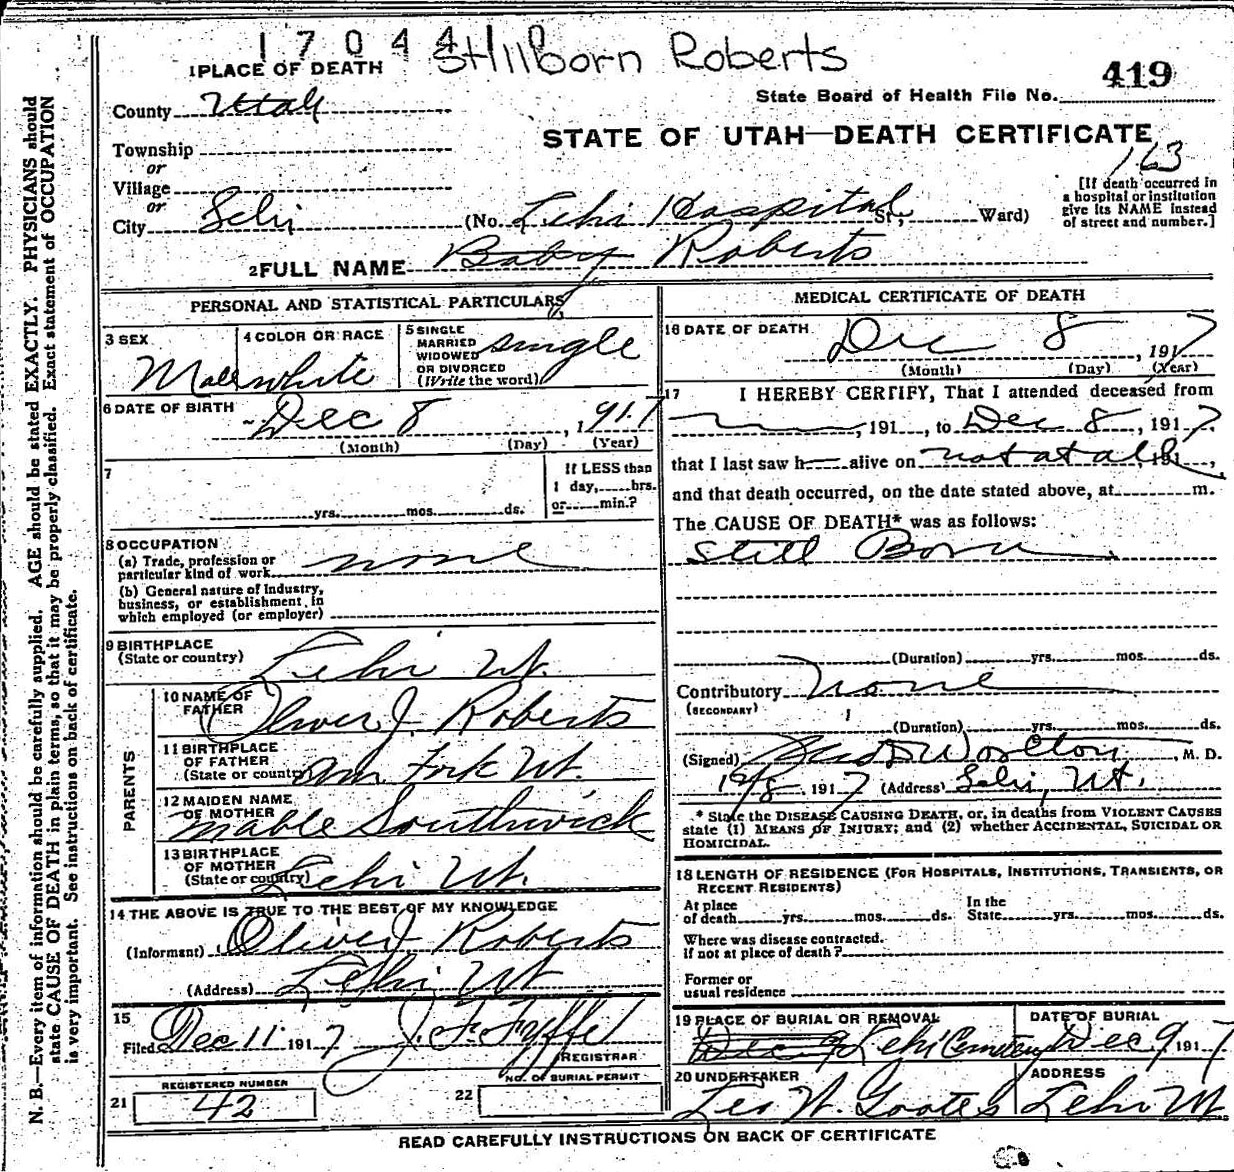 170441
Stillborn Roberts
1 PLACE OF DEATH
419
State Board of Health File No.
County Utah
STATE OF UTAH—DEATH CERTIFICATE
163
Township
or
Village
or
City Lehi (No. Lehi Hospital St., Ward)
[If death occurred in
a hospital or institution
give its NAME instead
of street and number.]
2 FULL NAME Baby Roberts
PERSONAL AND STATISTICAL PARTICULARS
3 SEX
Male
4 COLOR OR RACE
white
5 SINGLE
MARRIED
WIDOWED
OR DIVORCED
(Write the word)
single
6 DATE OF BIRTH
Dec 8, 1917
(Month) (Day) (Year)
7
yrs. mos. ds.
If LESS than
1 day, hrs.
or min.?
8 OCCUPATION
(a) Trade, profession or
particular kind of work none
(b) General nature of Industry,
business, or establishment in
which employed (or employer)
9 BIRTHPLACE
(State or country) Lehi Ut.
PARENTS
10 NAME OF
FATHER Oliver J. Roberts
11 BIRTHPLACE
OF FATHER
(State or country) Am Fork Ut.
12 MAIDEN NAME
OF MOTHER Mable Southwick
13 BIRTHPLACE
OF MOTHER
(State or country) Lehi Ut.
14 THE ABOVE IS TRUE TO THE BEST OF MY KNOWLEDGE
(Informant) Oliver J Roberts
(Address) Lehi Ut
15
Filed Dec 11 1917 J. F.
REGISTRAR
REGISTERED NUMBER
21 42
NO. OF BURIAL PERMIT
22
MEDICAL CERTIFICATE OF DEATH
16 DATE OF DEATH
Dec 8, 1917
(Month) (Day) (Year)
17 I HEREBY CERTIFY, That I attended deceased from
, 191 , to Dec 8, 1917.
that I last saw h alive on not at all, 191 ,
and that death occurred, on the date stated above, at m.
The CAUSE OF DEATH* was as follows:
Still Born
(Duration) yrs. mos. ds.
Contributory None
(SECONDARY)
(Duration) yrs. mos. ds.
(Signed) Worlton, M. D.
12/8, 1917 (Address) Lehi, Ut.
* State the DISEASE CAUSING DEATH, or, in deaths from VIOLENT CAUSES
state (1) MEANS OF INJURY; and (2) whether ACCIDENTAL, SUICIDAL OR
HOMICIDAL.
18 LENGTH OF RESIDENCE (FOR HOSPITALS, INSTITUTIONS, TRANSIENTS, OR
RECENT RESIDENTS)
At place
of death yrs. mos. ds.
In the
State yrs. mos. ds.
Where was disease contracted.
if not at place of death?
Former or
usual residence
19 PLACE OF BURIAL OR REMOVAL
Dec 9 Lehi Cemetery
DATE OF BURIAL
Dec 9, 1917
20 UNDERTAKER
Leo W. Goates
ADDRESS
Lehi Ut
READ CAREFULLY INSTRUCTIONS ON BACK OF CERTIFICATE
N. B.—Every item of information should be carefully supplied. AGE should be stated EXACTLY. PHYSICIANS should
state CAUSE OF DEATH in plain terms, so that it may be properly classified. Exact statement of OCCUPATION
is very important. See instructions on back of certificate.